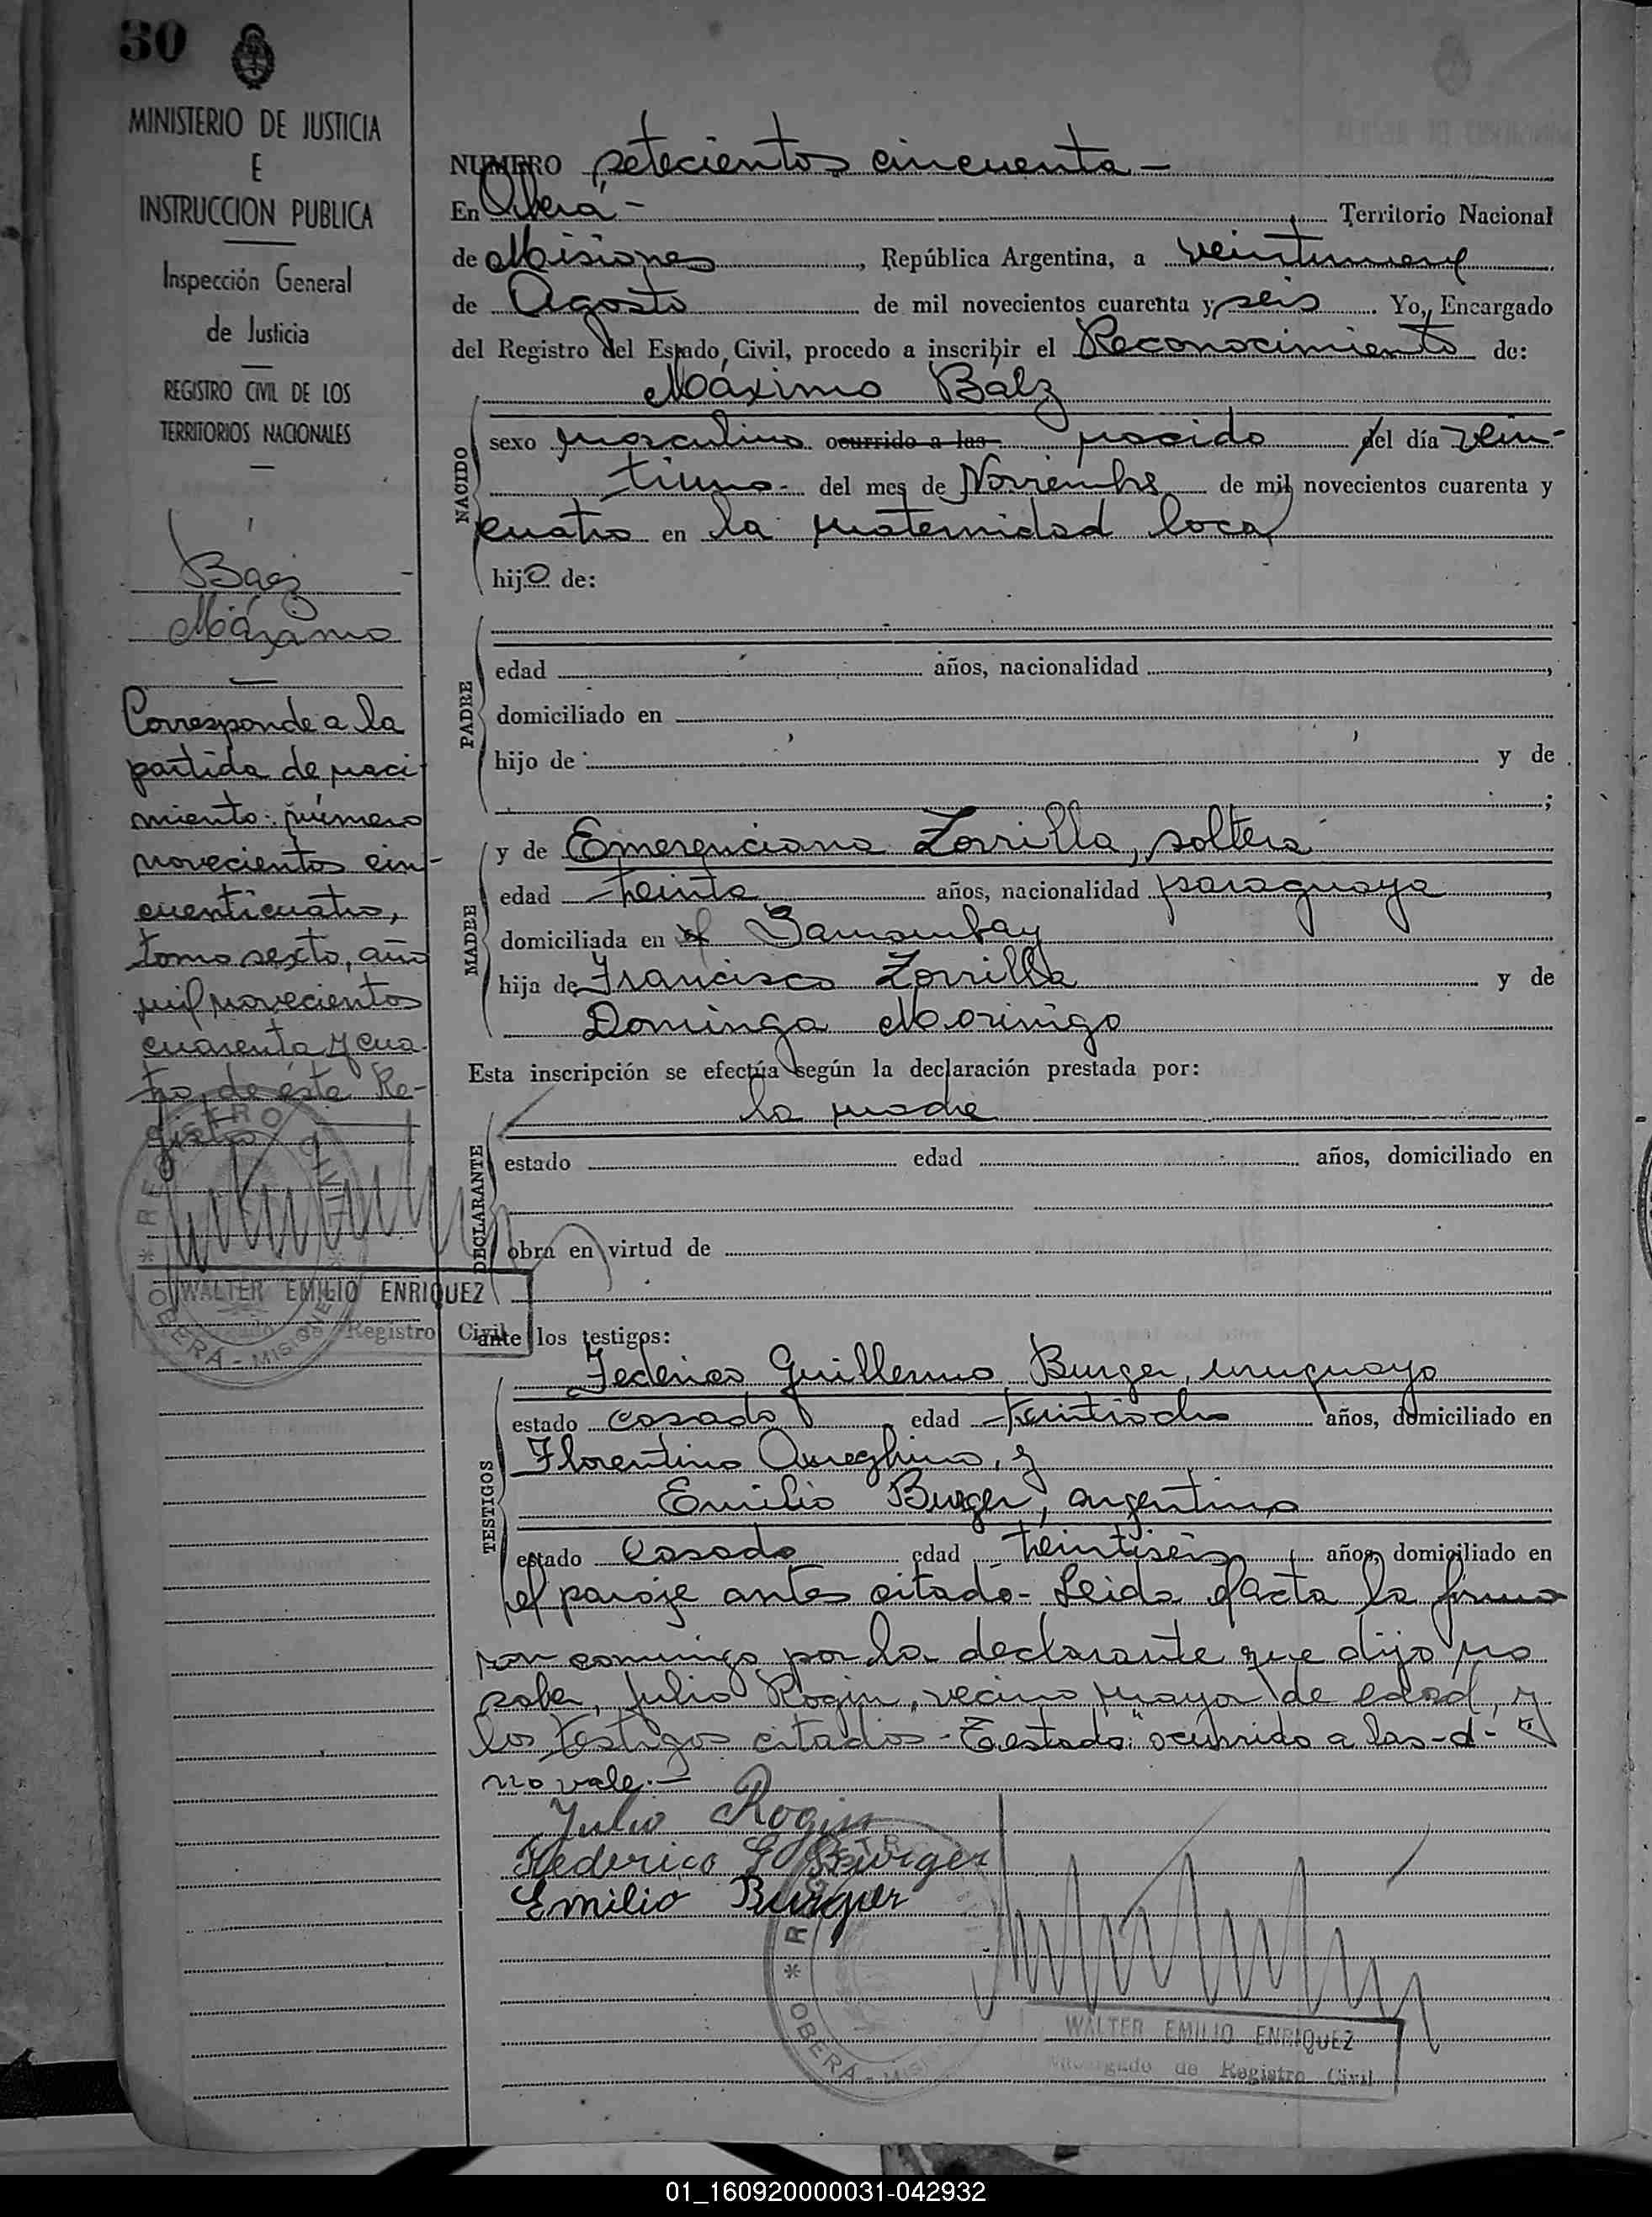 30
MINISTERIO DE JUSTICIA
E
INSTRUCCION PUBLICA
Inspección General
de Justicia
REGISTRO CIVIL DE LOS
TERRITORIOS NACIONALES
Báez
Máximo
Corresponde a la
partida de naci
miento: número
novecientos cin-
cuenticuatro,
tomo sexto, año
mil novecientos
cuarenta y cua-
tro, de éste Re-
gistro
REGISTRO CIVIL
OBERA - MISIONES
WALTER EMILIO ENRIQUEZ
Encargado de Registro Civil
NUMERO setecientos cincuenta -
En Oberá - Territorio Nacional
de Misiones, República Argentina, a veintinueve
de Agosto de mil novecientos cuarenta y seis. Yo, Encargado
del Registro del Estado Civil, procedo a inscribir el Reconocimiento de:
NACIDO
Máximo Báez
sexo masculino ocurrido a las nacido del día vein-
tiuno - del mes de Noviembre de mil novecientos cuarenta y
cuatro en la maternidad local
hijo de:
PADRE
edad años, nacionalidad ,
domiciliado en
hijo de y de
;
MADRE
y de Emerenciana Zorrilla, soltera
edad treinta años, nacionalidad paraguaya,
domiciliada en Samambay
hija de Francisco Zorrilla y de
Dominga Morinigo
Esta inscripción se efectúa según la declaración prestada por:
DECLARANTE
la madre
estado edad años, domiciliado en
obra en virtud de
ante los testigos:
TESTIGOS
Federico Guillermo Burger, uruguayo
estado casado edad treintiocho años, domiciliado en
Florentino Ameghino, y
Emilio Burger, argentino
estado casado edad treintiseis años, domiciliado en
el paraje antes citado - Leida el acta la firma
ron conmigo por la declarante que dijo no
saber, Julio Rogin, vecino mayor de edad, y
los testigos citados - Testado: "ocurrido a las - d - "
no vale. -
Julio Rogin
Federico G Burger
Emilio Burger
REGISTRO
OBERA - MISIONES
WALTER EMILIO ENRIQUEZ
Encargado de Registro Civil
01_160920000031-042932